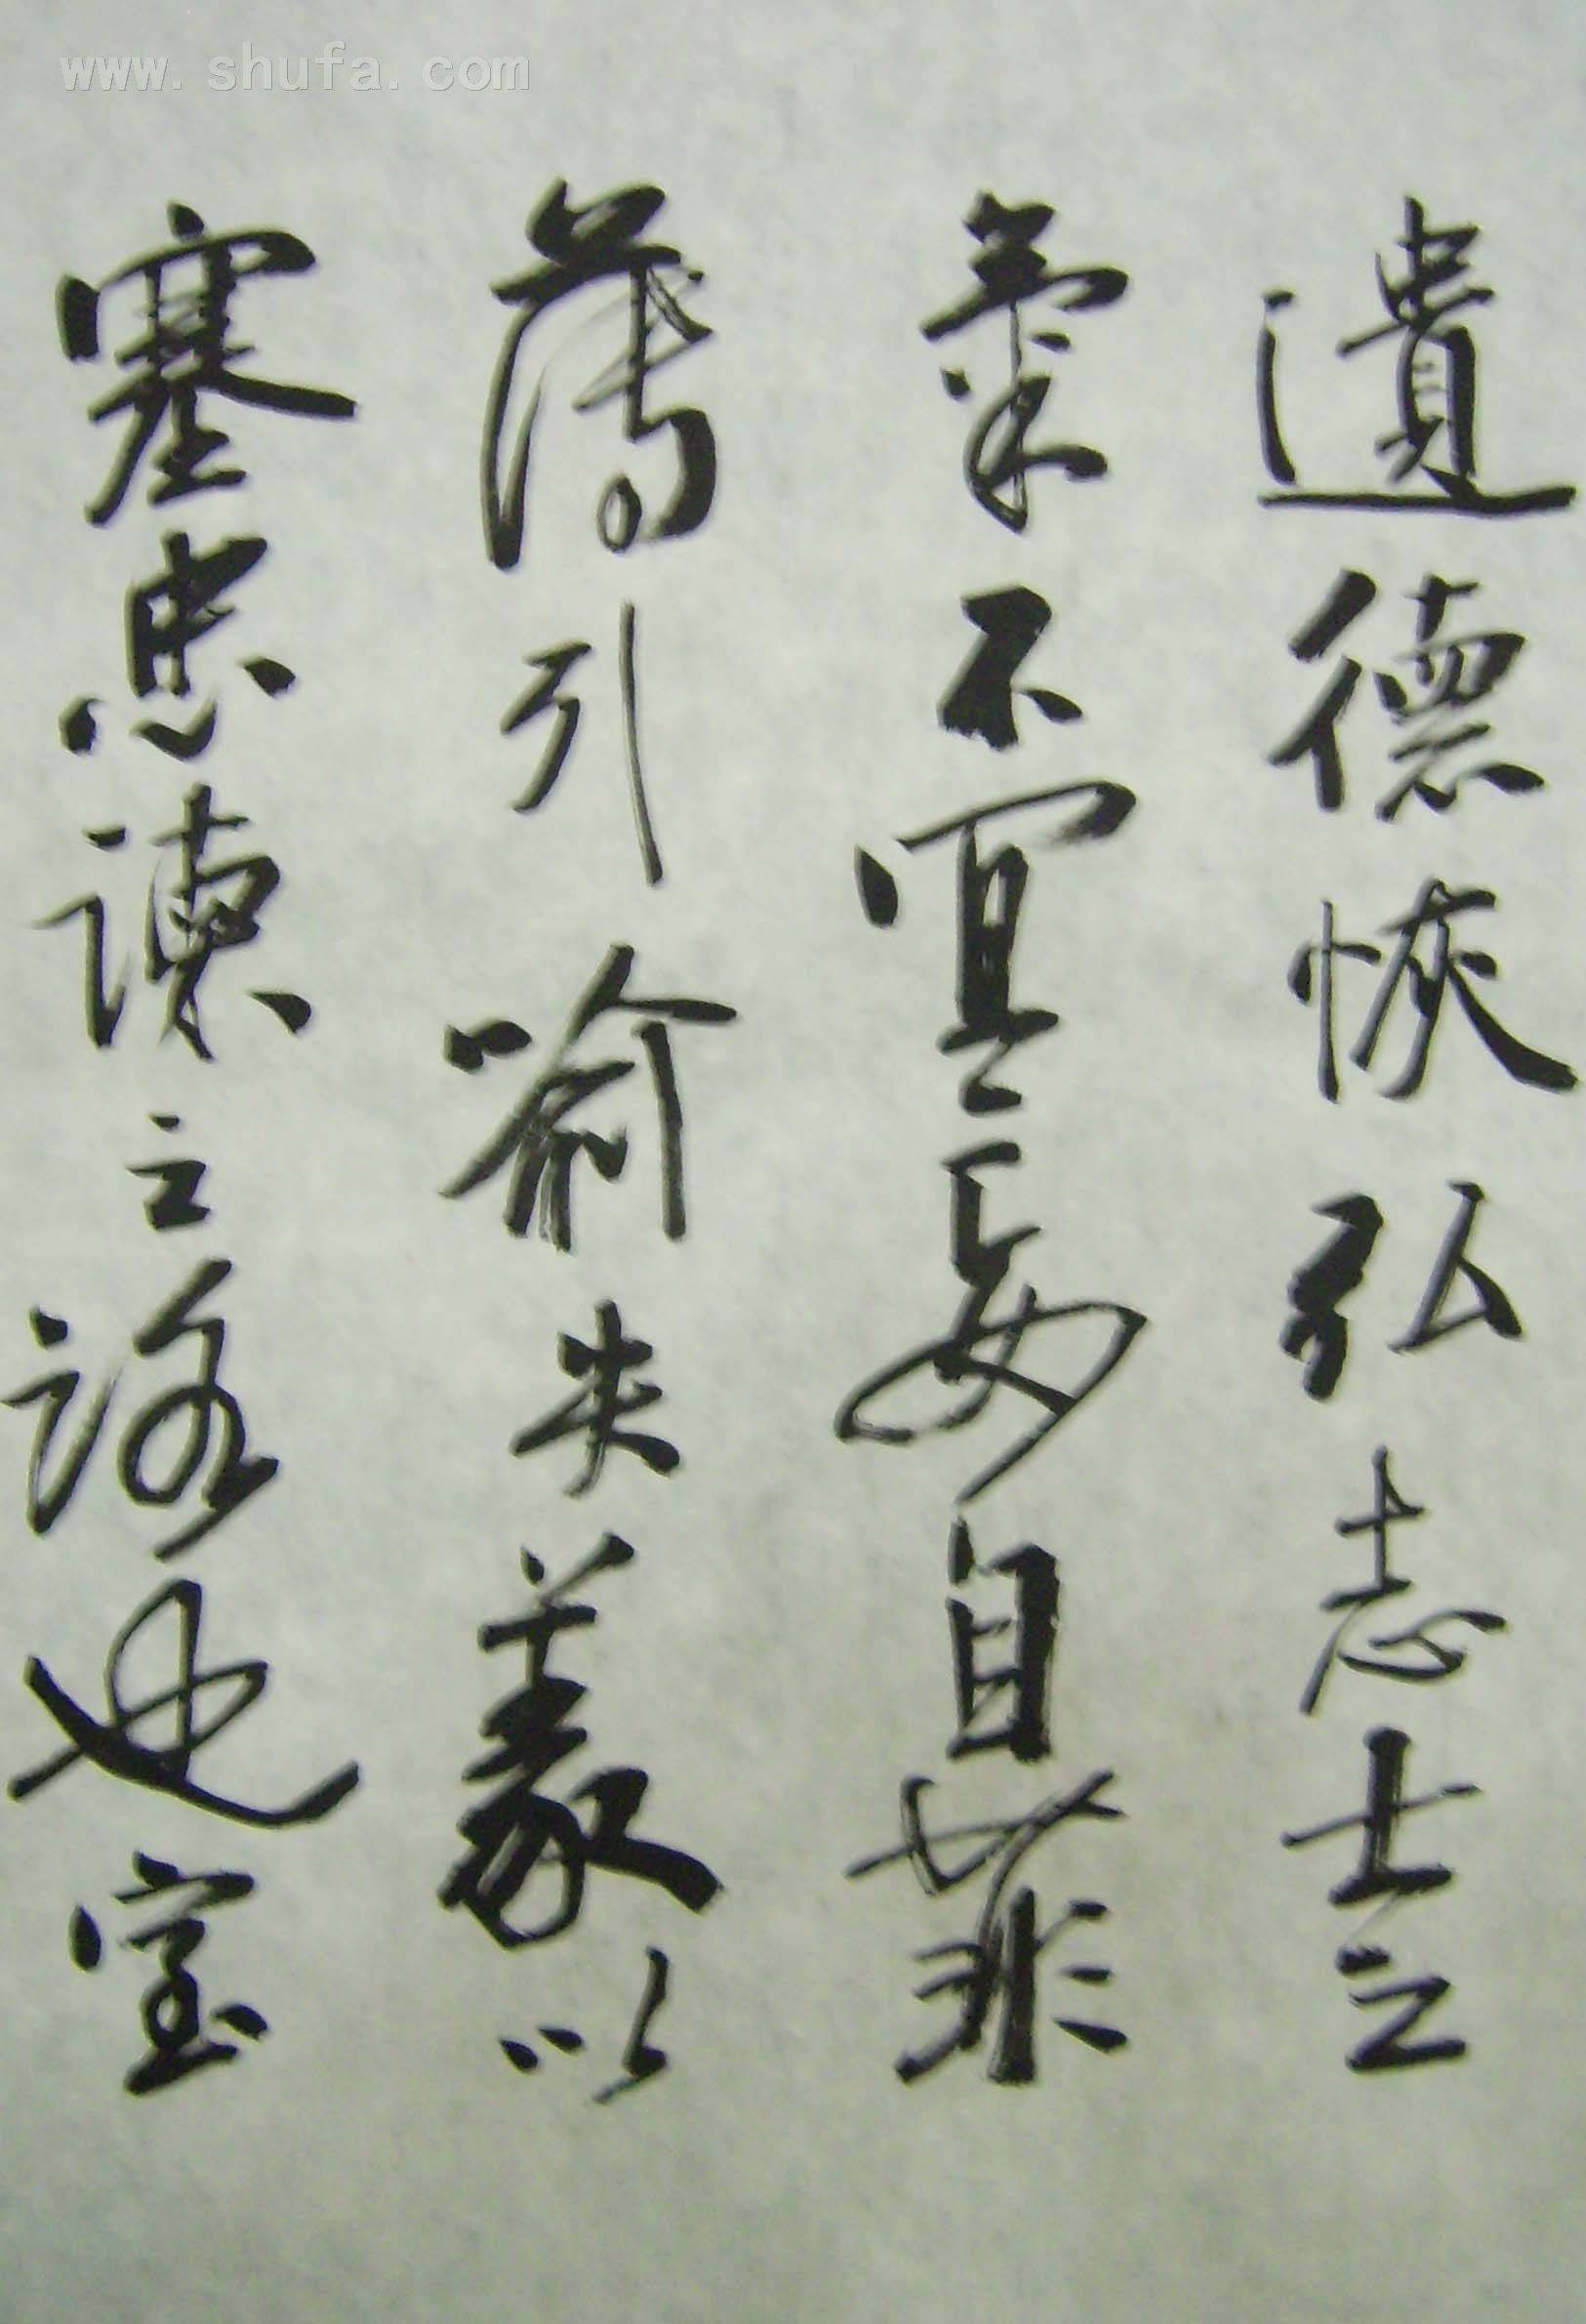 www.shufa.com
遺德恢弘志士之
氣不宜妄自菲
薄引喻失義以
塞忠諫之路也宮